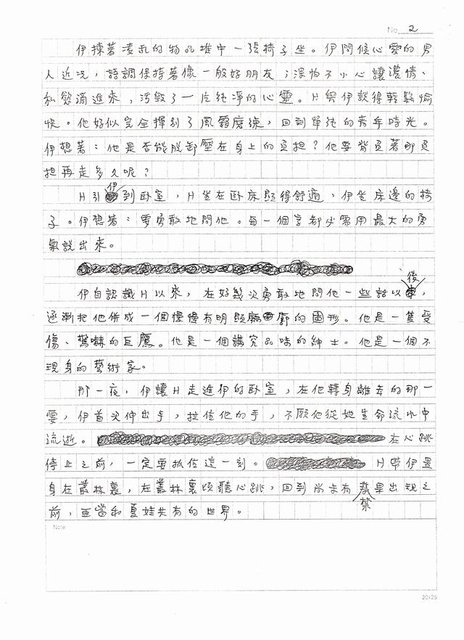 No 2
伊揀著凌亂的物品堆中一張椅子坐。伊問候心愛的男
人近況，語調保持著像一般好朋友；深怕不小心讓濃情、
私慾滴進來，污穢了一片純淨的心靈。H與伊談得輕鬆愉
快。他好似完全揮別了風霜磨練，回到單純的青年時光。
伊想著：他是否能脫卸壓在身上的重擔？他要背負著那重
担再走多久呢？
H引伊到臥室，H坐在臥床顯得舒適，伊坐床邊的椅
子。伊想著：要勇敢地問他。每一個字都必需用最大的勇
氣說出來。
伊自認識H以來，在好幾次勇敢地問他一些話以後，
逐漸把他儕成一個僂僂有明顯輪廓的圖形。他是一隻受
傷、驚嚇的巨鷹。他是一個講究品味的紳士。他是一個不
現身的藝術家。
那一夜，伊讓H走進伊的臥室，在他轉身離去的那一
霎，伊首次伸出手，拉住他的手，不願他從她生命流水中
流逝。在心跳
停止之前，一定要抓住這一刻。H帶伊置
身在叢林裏，在叢林裏傾聽心跳，回到尚未有禁果出現之
前，亞當和夏娃共有的世界。
Note
20/25